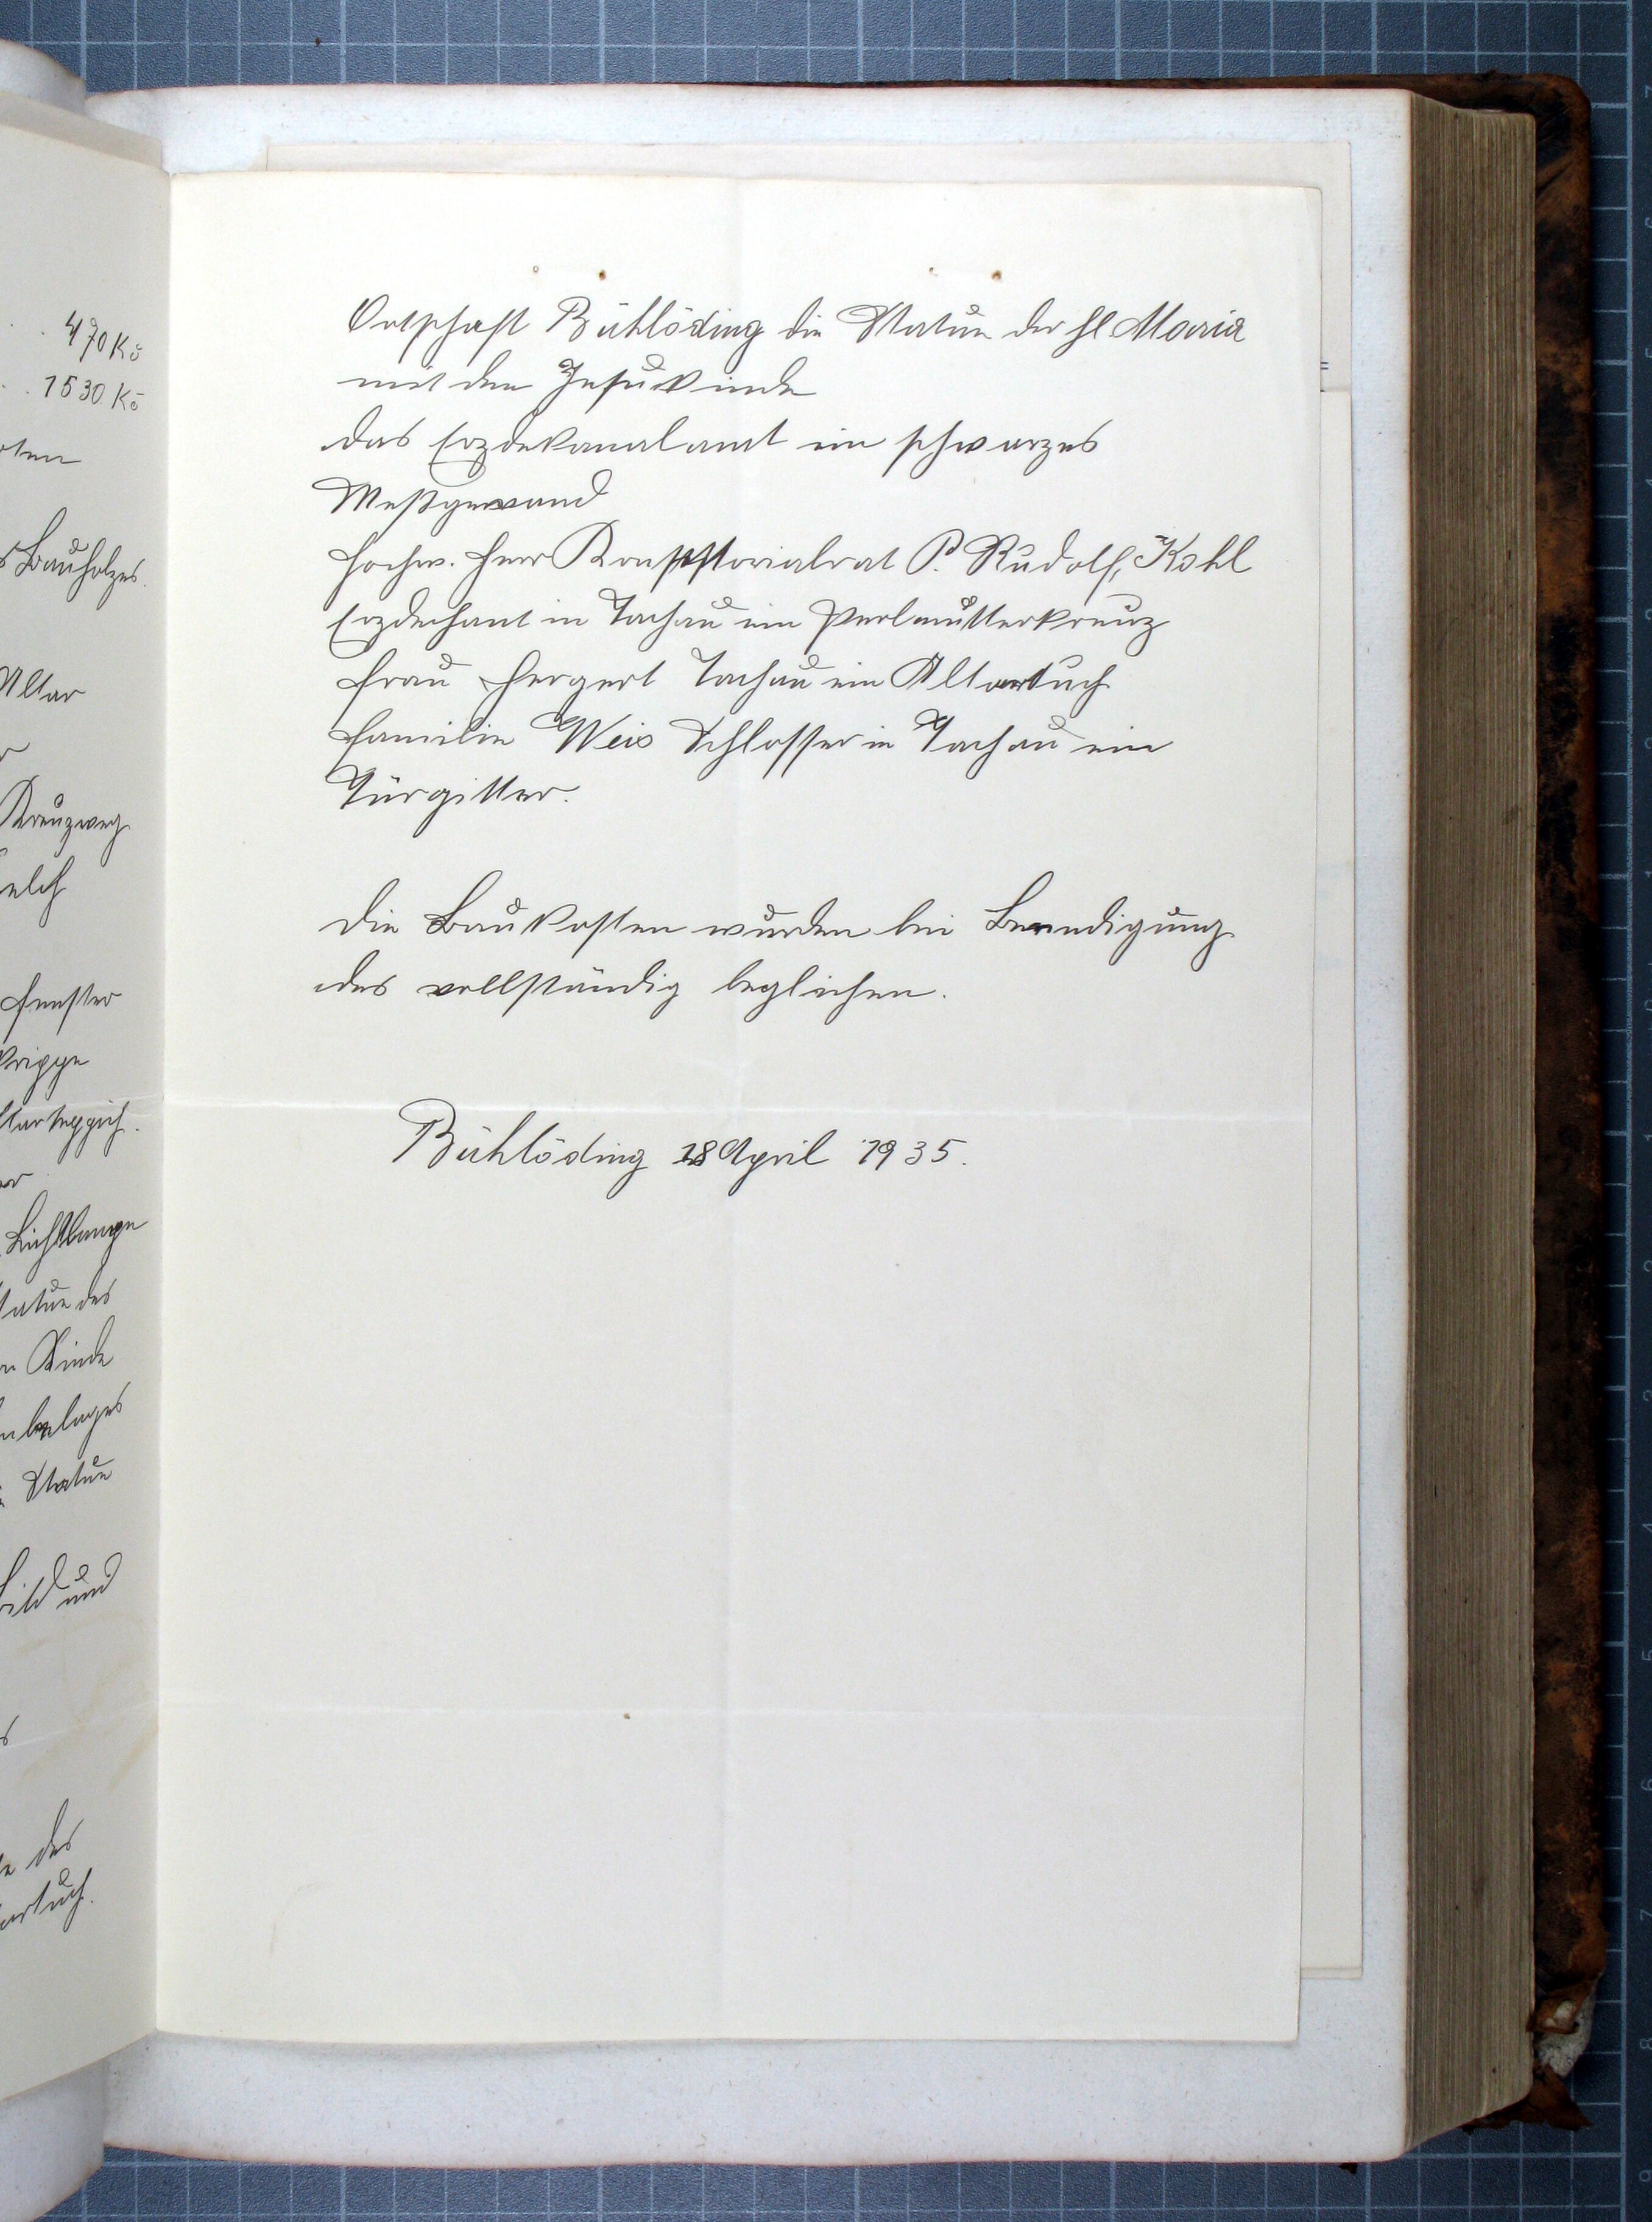 470 Kč
1530 Kč
Bauholzes.
Altar
Kreuzweg
Fenster
Krippe
Statue des
Kinde
Statue
Bild und
des
Ortschaft Bühlöding die Statue der hl Maria
mit den Jesukinde
das Erzdekanalamt ein schwarzes
Meßgewand
Hochw. Herr Konsistorialrat P. Rudolf Kohl
Erzdechant in Tachau ein Perlmutterkreuz
Frau Hergert Tachau ein Altartuch
Familie Weis Schlosser in Tachau ein
Türgitter.
Die Baukosten wurden bei Beendigung
des vollständig beglichen.
Bühlöding 28 April 1935.